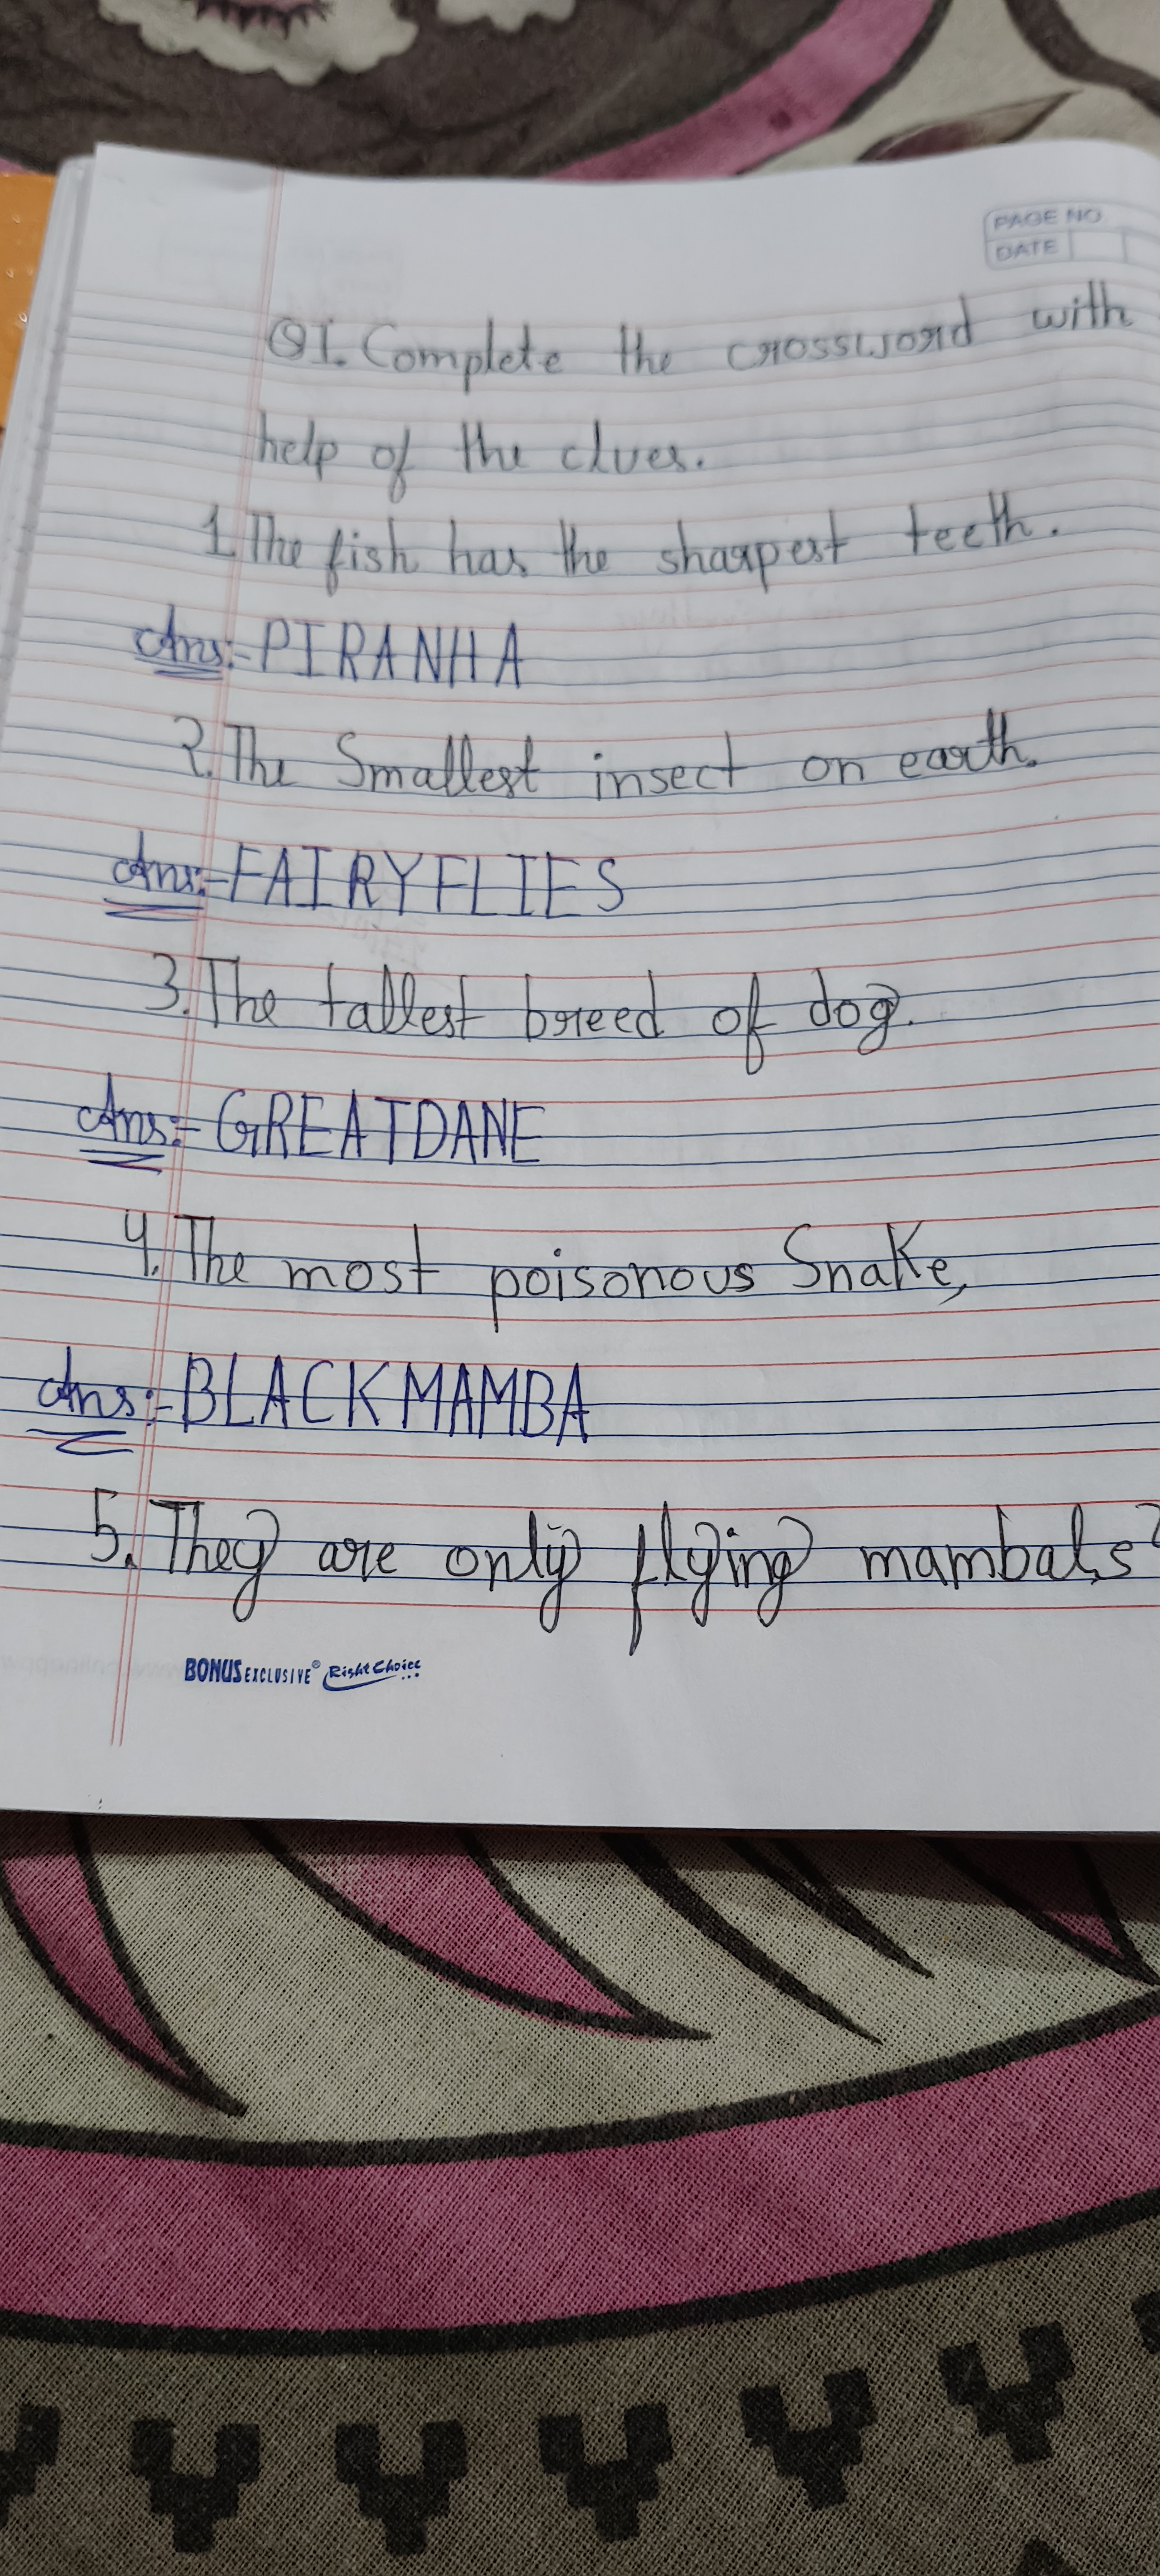 PAGE NO.
DATE
Q1. Complete the crossword with
help of the clues.
1. The fish has the sharpest teeth.
Ans:- PIRANHA
2. The Smallest insect on earth.
Ans:- FAIRYFLIES
3. The tallest breed of dog.
Ans:- GREATDANE
4. The most poisonous Snake,
Ans:- BLACKMAMBA
5. They are only flying mambals?
BONUS EXCLUSIVE® Right Choice